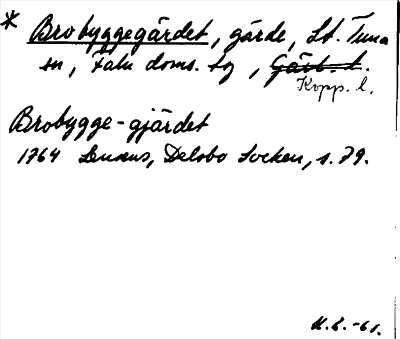 * Brobyggegärdet, gärde, St. Tuna
sn, Falu doms. tg, Gävl. l.
Kopp. l.
Brobygge-gjärdet
1764 Lenæus, Delsbo Socken, s. 79.
K.E.-61.